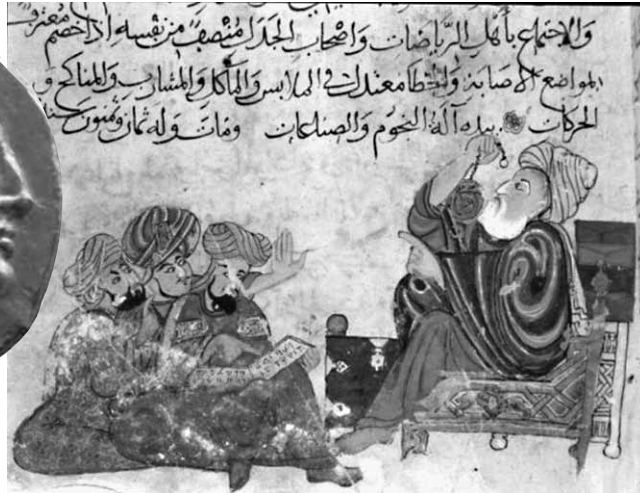 والاجتماع بأهل الرياضات واصحاب الجدل منصف من نفسه اذا خصم معترف
بمواضع الاصابة والخطا معتدل في الملابس والمآكل والمشارب والمناكح و
الحركات بيده آلة النجوم والصناعات ومات وله ثمان وتمنون سنة